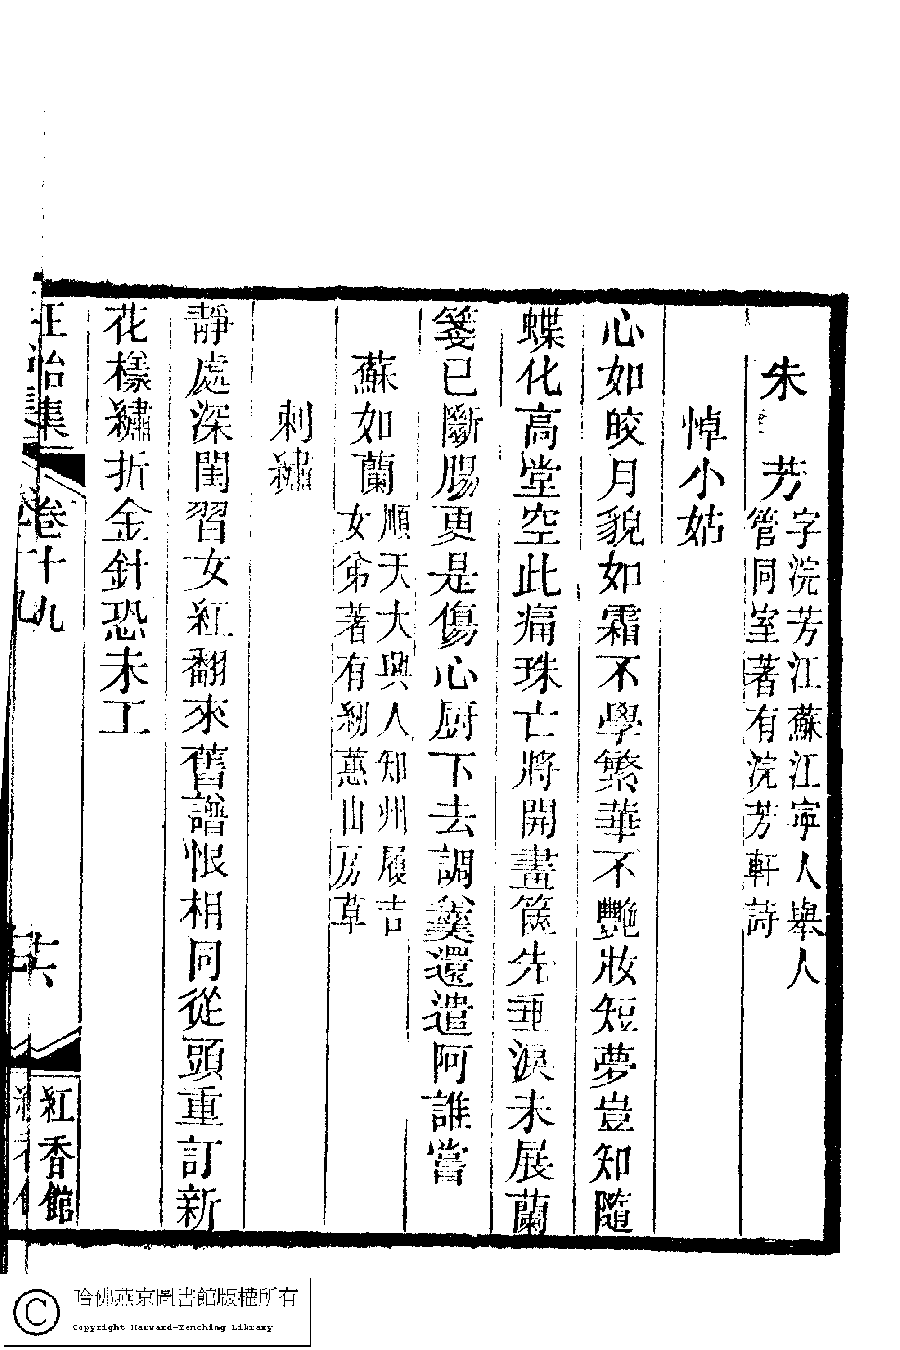 朱　芳
字浣芳江蘇江寧人舉人
管同室著有浣芳軒詩
悼小姑
心如皎月貌如霜不學繁華不艷妝短夢豈知隨
蝶化高堂空此痛珠亡將開畫篋先垂淚未展蘭
箋已斷腸更是傷心厨下去調羹還遣阿誰嘗
蘇如蘭
順天大興人知州履吉
女弟著有紉蕙山房草
刺繡
靜處深閨習女紅翻來舊譜恨相同從頭重訂新
花樣繡折金針恐未工
正始集
卷十九
六
紅香館
哈佛燕京圖書館版權所有
Copyright Harvard-Yenching Library